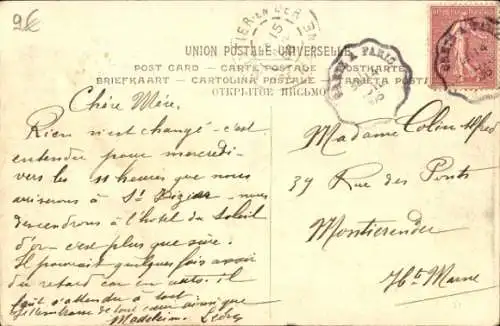 9€
UNION POSTALE UNIVERSELLE
POST CARD — CARTE POSTALE — POSTKARTE
BRIEFKAART — CARTOLINA POSTALE — TARJETA POSTAL
ОТКРЫТОЕ ПИСЬМО
PARIS
Chère Mère,
Rien n'est changé - c'est
entendu pour mercredi -
vers les 11 heures que nous
arriverons à St Dizier - nous
descendrons à l'hotel du Soleil
d'or - c'est plus que sûre.
Il pourrait quelques fois avoir
du retard car en auto. il
faut s'attendre à tout
Madeleine
Madame Colin Alfred
39 Rue des Ponts
Montierender
Hte Marne